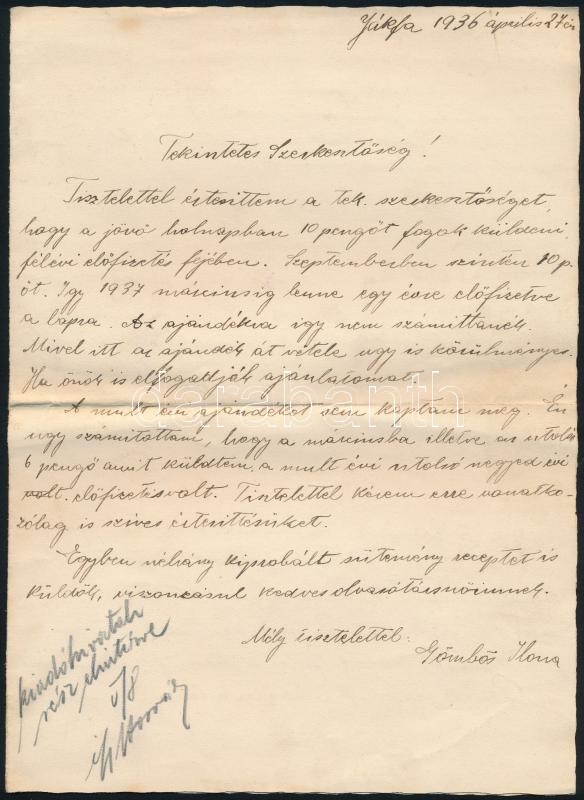 Jákfa 1936 április 27 én
Tekintetes Szerkesztőség!
Tisztelettel értesittem a tek. szerkesztőséget,
hogy a jövő holnapban 10 pengőt fogok küldeni,
félévi előfizetés fejében. Szeptemberben szintén 10 p.
őt. Igy 1937 márciusig lenne egy évre előfizetve
a lapra. Az ajándékra igy nem számittanék.
Mivel itt az ajándék át vétele ugy is körülményes.
Ha önök is elfogadják ajánlatomat.
A mult évi ajándékot sem kaptam meg. Én
ugy számitottam, hogy a márciusba illetve az utolsó
6 pengő amit küldtem, a mult évi utolsó negyed évi
volt. előfizetés volt. Tisztelettel kérem erre vonatko-
zólag is szives értesittésüket.
Egyben néhány kiprobált sütemény receptet is
küldök, viszonzásul kedves olvasótársnőimnek.
Mély tisztelettel:
Gömbös Ilona
kiadóhivatali
rész elintézve
5/8
darabanth